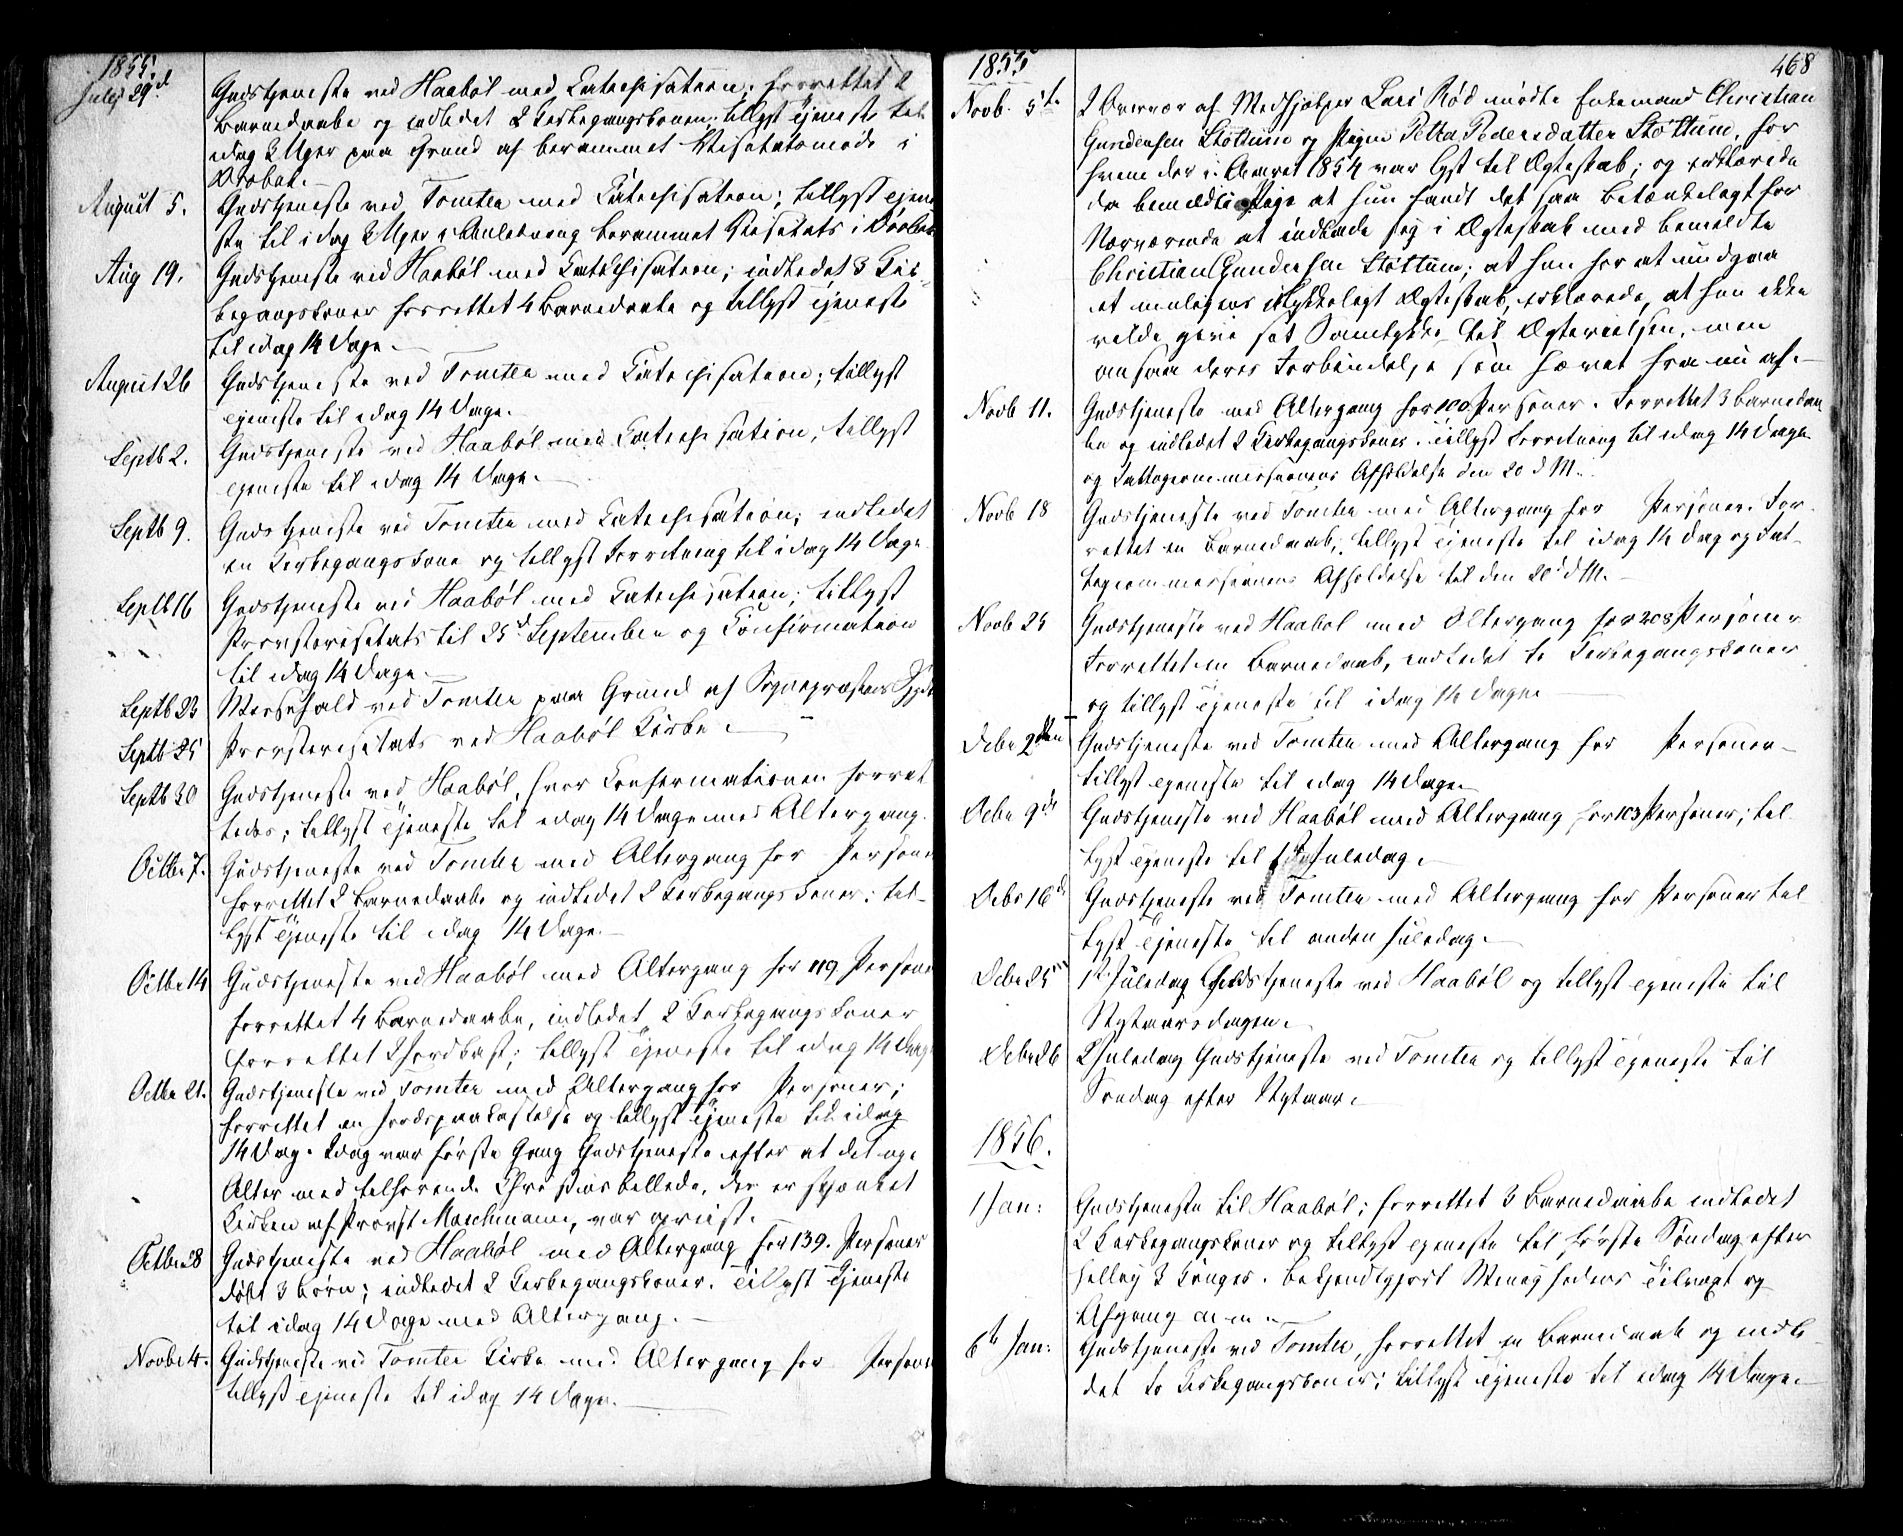 1855.
Julij 29d Gudstjeneste ved Haabøl med Catechisation; forrettet 2
Barnedaabe og indledet 2 Kirkegangskoner; tillyst Tjeneste til
idag 3 Uger paa Grund af berammet Visitatsmøde i
Drøbak.
August 5. Gudstjeneste ved Tomter med Catechisation; tillyst Tjene
ste til idag 3 Uger i Anledning berammet Visitats i Drøbak
Aug 19. Gudstjeneste ved Haabøl med Catechisation; indledet 3 Kir-
kegangskoner forrettet 4 Barnedaabe og tillyst Tjeneste
til idag 14 Dage.
August 26 Gudstjeneste ved Tomter med Catechisation; tillyst
Tjeneste til idag 14 Dage.
Septb 2. Gudstjeneste ved Haabøl med Catechisation, tillyst
Tjeneste til idag 14 Dage.
Septb 9. Gudstjeneste ved Tomter med Catechisation; indledet
en Kirkegangskone og tillyst Forretning til idag 14 Dage
Septb 16 Gudstjeneste ved Haabøl med Catechisation; tillyst
Provstevisitats til 25d September og Confirmation
til idag 14 Dage.
Septb 23 Messefald ved Tomter paa Grund af Sognepræstens Sygd
Septb 25 Provstevisitats ved Haabøl Kirke.
Septb 30 Gudstjeneste ved Haabøl, hvor Confirmationen forret
tedes; tillyst Tjeneste til idag 14 Dage med Altergang.
Octbr 7. Gudstjeneste ved Tomter med Altergang for Persone
forrettet 2 Barnedaabe og indledet 2 Kirkegangskoner; til-
lyst Tjeneste til idag 14 Dage.
Octbr 14 Gudstjeneste ved Haabøl med Altergang for 119 Persone
forrettet 4 Barnedaabe, indledet 2 Kirkegangskoner
forrettet 2 Jordkast; tillyst Tjeneste til idag 14 Dage
Octbr 21. Gudstjeneste ved Tomter med Altergang for Personer;
forrettet en Jordspaakastelse og tillyst Tjeneste til idag
14 Dag. Idag var første Gang Gudstjeneste efter at det nye
Alter med tilhørende Christusbillede, der er skjænket
Kirken af Provst Maschmann, var opreist.
Octbr 28 Gudstjeneste ved Haabøl med Altergang for 139. Personer
døbt 3 Børn; indledet 2 Kirkegangskoner. Tillyst Tjeneste
til idag 14 Dage med Altergang.
Novbr 4. Gudstjeneste ved Tomter Kirke med Altergang for Persone
tillyst Tjeneste til idag 14 Dage.
1855 468
Novb. 5te I Overvær af Medhjælper Lars Rød mødte Enkemand Christian
Gundersen Støttum og Pigen Petra Pedersdatter Støttum, for
hvem der i Aaret 1854 var lyst til Ægteskab; og erklærede
da bemældte Pige at hun fandt det saa betænkeligt for
Nærværende at indlade sig i Ægteskab med bemeldte
Christian Gundersen Støttum; at hun for at undgaa
et muligens ulykkeligt Ægteskab, erklærede, at hun ikke
vilde give sit Samtykke til Ægtevielsen, men
ansaa deres Forbindelse som hævet fra nu af.
Novb 11. Gudstjeneste med Altergang for 100 Personer. Forrettet 3 Barnedaa
be og indledet 2 Kirkegangskoner. Tillyst Forretning til idag 14 Dage
og Fattigcommissionens Afholdelse den 20 d M.
Novb 18 Gudstjeneste ved Tomter med Altergang for Personer. For-
rettet en Barnedaab, tillyst Tjeneste til idag 14 Dag og Fat-
tigcommissionens Afholdelse til den 20d d M.
Novb 25 Gudstjeneste ved Haabøl med Altergang for 208 Personer
Forrettet en Barnedaab, indledet to Kirkegangskoner
og tillyst Tjeneste til idag 14 Dage
Debr 2den Gudstjeneste ved Tomter med Altergang for Personer
tillyst Tjeneste til idag 14 Dage.
Debr 9de Gudstjeneste ved Haabøl med Altergang for 103 Personer; til
lyst Tjeneste til 1ste Juledag.
Debr 16de Gudstjeneste ved Tomter med Altergang for Personer til
lyst Tjeneste til anden Juledag.
Debr 25 1st Juledag Gudstjeneste ved Haabøl og tillyst Tjeneste til
Nytaarsdagen.
Debr 26 2 Juledag Gudstjeneste ved Tomter og tillyst Tjeneste til
Søndag efter Nytaar.
1856.
1 Jan: Gudstjeneste til Haabøl; forrettet 3 Barnedaabe indledet
2 Kirkegangskoner og tillyst Tjeneste til første Søndag efter
Hellig 3 Konger. Bekjendtgjort Menighedens Tilvæxt og
Afgang m. m.
6te Jan: Gudstjeneste ved Tomter, forrettet en Barnedaab og indle-
det to Kirkegangskoner; tillyst Tjeneste til idag 14 Dage.